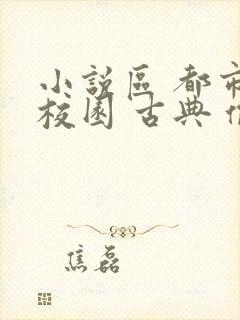 小説區 都市
校園 古典
焦磊